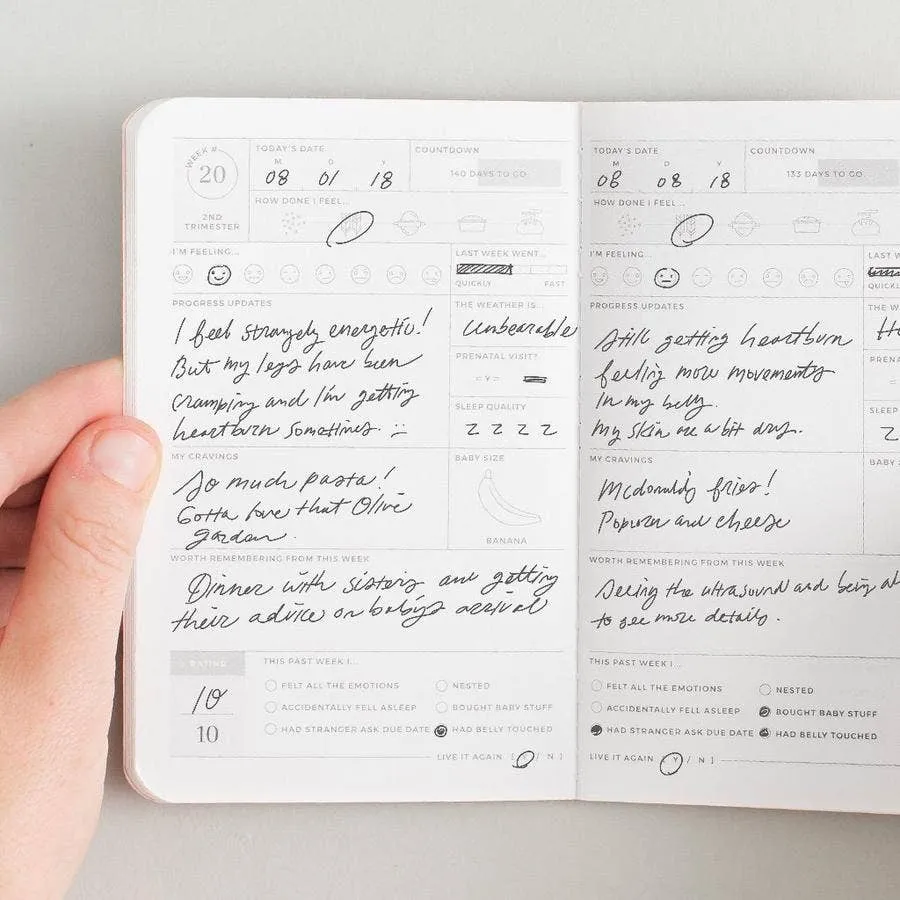 WEEK #
20
2ND
TRIMESTER
TODAY'S DATE
M D Y
08 01 18
COUNTDOWN
140 DAYS TO GO
HOW DONE I FEEL...
I'M FEELING...
LAST WEEK WENT...
QUICKLY FAST
PROGRESS UPDATES
I feel strangely energetic!
But my legs have been
cramping and I'm getting
heartburn sometimes. :(
THE WEATHER IS...
Unbearable
PRENATAL VISIT?
- Y -
SLEEP QUALITY
Z Z Z Z
MY CRAVINGS
So much pasta!
Gotta love that Olive
garden.
BABY SIZE
BANANA
WORTH REMEMBERING FROM THIS WEEK
Dinner with sisters and getting
their advice on baby's arrival
RATING
10
10
THIS PAST WEEK I...
FELT ALL THE EMOTIONS
NESTED
ACCIDENTALLY FELL ASLEEP
BOUGHT BABY STUFF
HAD STRANGER ASK DUE DATE
HAD BELLY TOUCHED
LIVE IT AGAIN [ Y / N ]
TODAY'S DATE
M D Y
08 08 18
COUNTDOWN
133 DAYS TO GO
HOW DONE I FEEL...
I'M FEELING...
LAST W
QUICKL
PROGRESS UPDATES
Still getting heartburn
feeling more movements
in my belly.
my skin are a bit dry.
THE W
PRENA
SLEEP
Z
MY CRAVINGS
Mcdonald's fries!
Popcorn and cheese
BABY S
WORTH REMEMBERING FROM THIS WEEK
Seeing the ultrasound and being
to see more details.
THIS PAST WEEK I...
FELT ALL THE EMOTIONS
NESTED
ACCIDENTALLY FELL ASLEEP
BOUGHT BABY STUFF
HAD STRANGER ASK DUE DATE
HAD BELLY TOUCHED
LIVE IT AGAIN [ Y / N ]